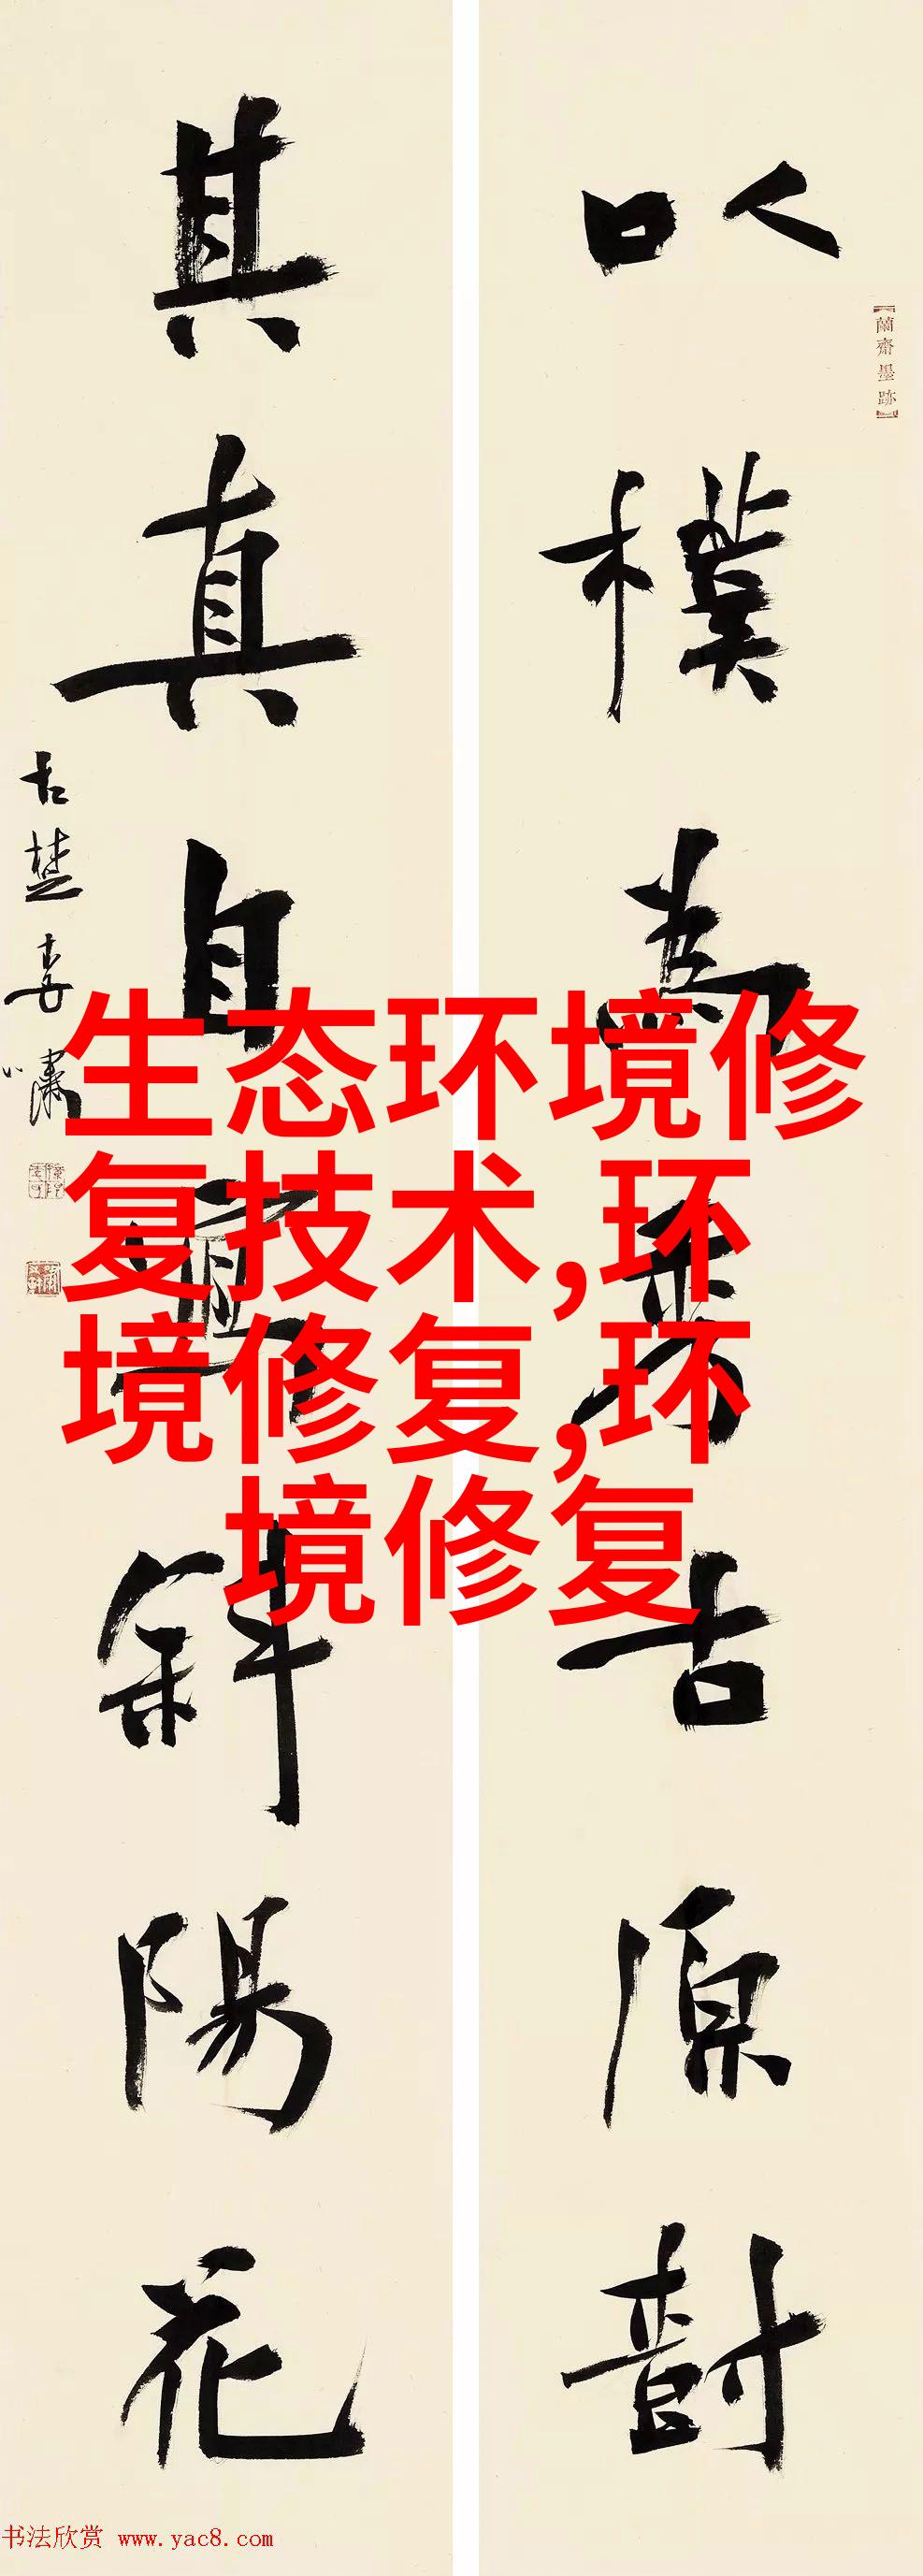 【蘭齋墨跡】
以樸為秀古原樹
其真自斜陽花
古楚李嘯
生态环境修
复技术,环
境修复,环
境修复
书法欣赏 www.yac8.com